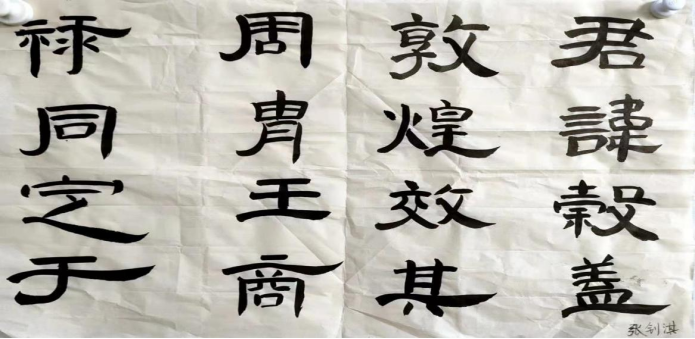 君諱穀盖
敦煌效其
周胄王商
禄同定于
张钊淇